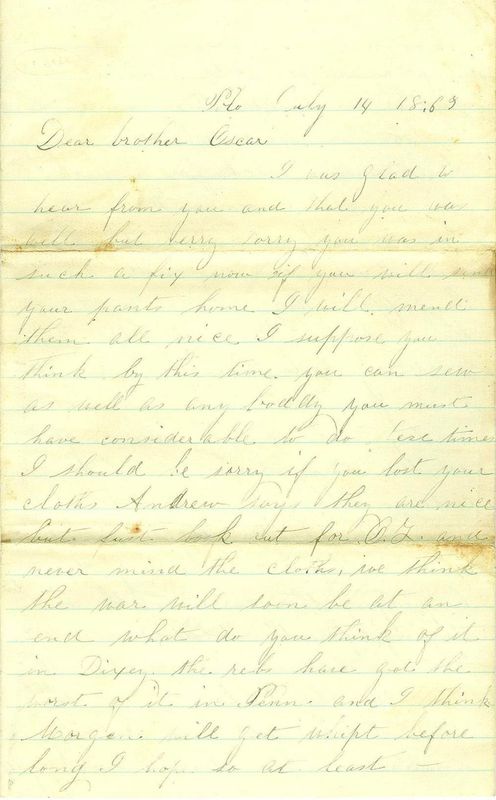 July 14 1863
Dear brother Oscar
I was glad to
hear from you and that you was
well but verry sorry you was in
such a fix now if you will send
your pants home I will mend
them all nice I suppose you
think by this time you can sew
as well as any boddy you must
have considerable to do these times
I should be sorry if you lost your
cloths Andrew says they are nice
but just look out for O.L. and
never mind the cloths, we think
the war will soon be at an
end what do you think of it
in Dixey the rebs have got the
worst of it in Penn. and I think
Morgen will get whipt before
long I hope so at least —